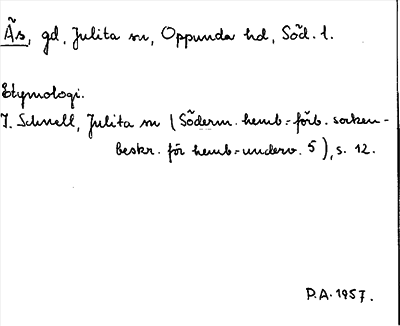 Ås, gd, Julita sn, Oppunda hd, Söd. l.
Etymologi.
I. Schnell, Julita sn (Söderm. hemb.-förb. socken-
beskr. för hemb-underv. 5), s. 12.
P.A. 1957.